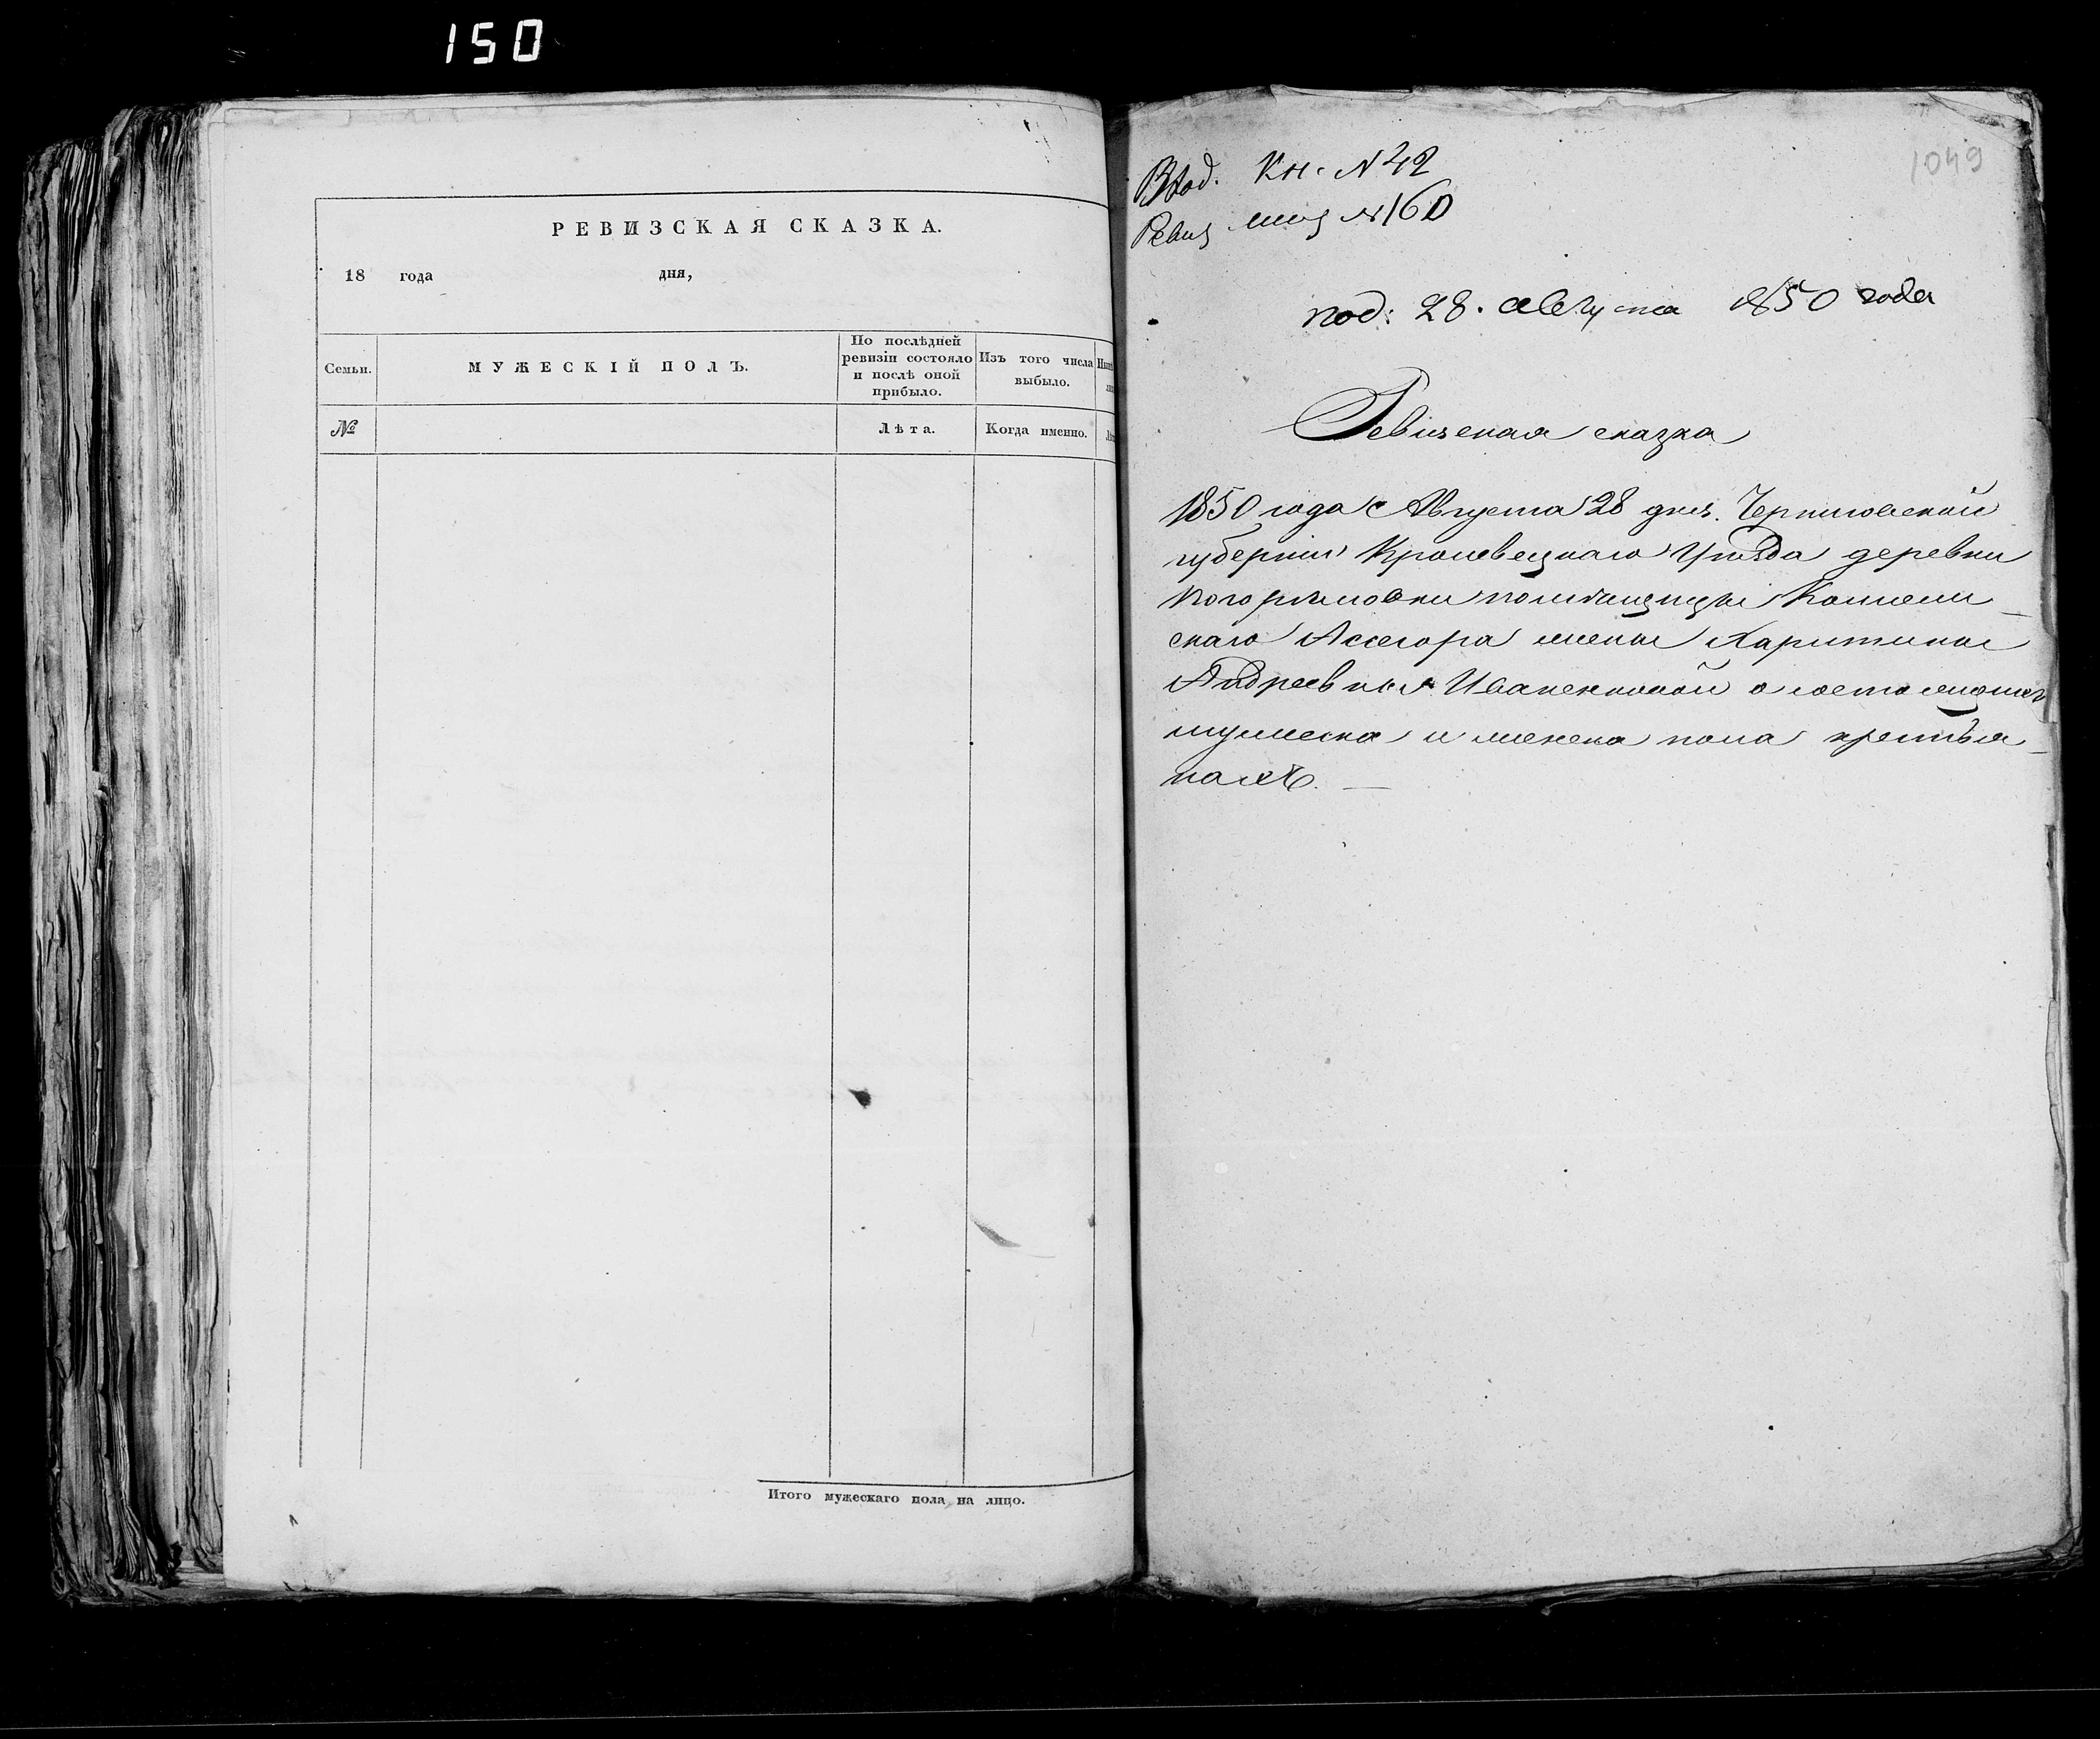 150
РЕВИЗСКАЯ СКАЗКА.
18 года дня,
Семьи.
МУЖЕСКІЙ ПОЛЪ.
По послѣдней
ревизіи состояло
и послѣ оной
прибыло.
Изъ того числа
выбыло.
№
Лѣта.
Когда именно.
Итого мужескаго пола на лицо.
1049
Вход. Кн. N 42
Ревиз N 160
под: 28. августа 1850 года
Ревизская сказка
1850 года Августа 28 дня. Черниговской
губерніи Кролевецкаго Уѣзда деревни
помѣщицы Коллеж-
скаго Ассесора жены Харитины
Андреевны Иваненковой о состоящихъ
мужеска и женска пола крестья-
нахъ.